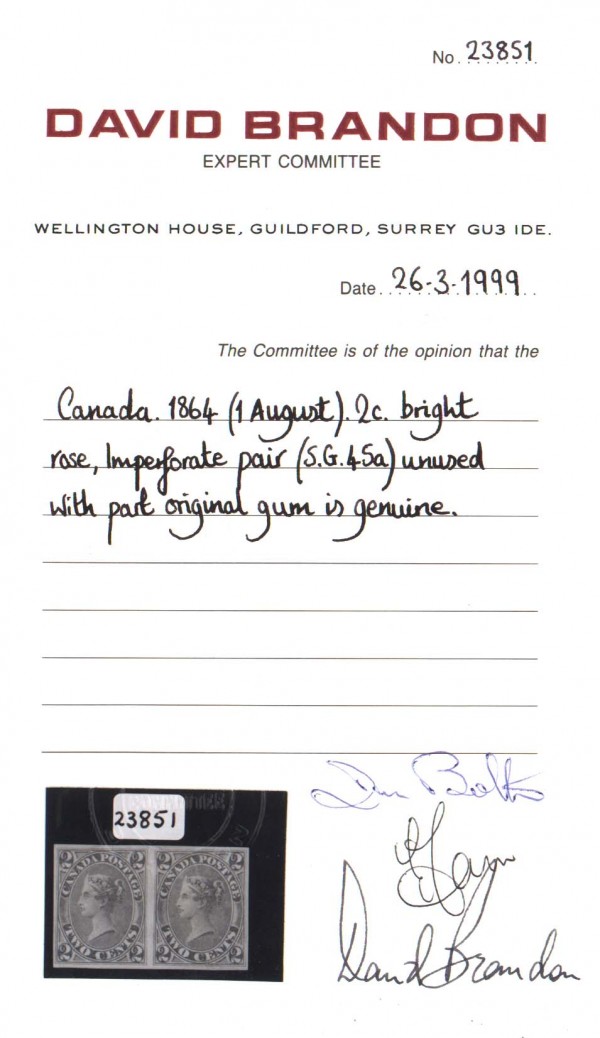 No. 23851
DAVID BRANDON
EXPERT COMMITTEE
WELLINGTON HOUSE, GUILDFORD, SURREY GU3 1DE.
Date 26-3-1999
The Committee is of the opinion that the
Canada. 1864 (1 August). 2c. bright
rose, Imperforate pair (S.G.45a) unused
with part original gum is genuine.
23851
CANADA POSTAGE CANADA POSTAGE
2 2 2 2
TWO CENTS TWO CENTS
2 2 2 2
David Brandon